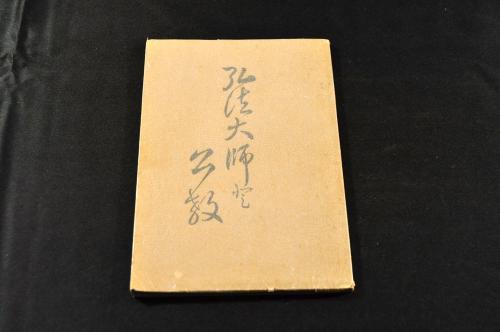 弘法大師と
公教